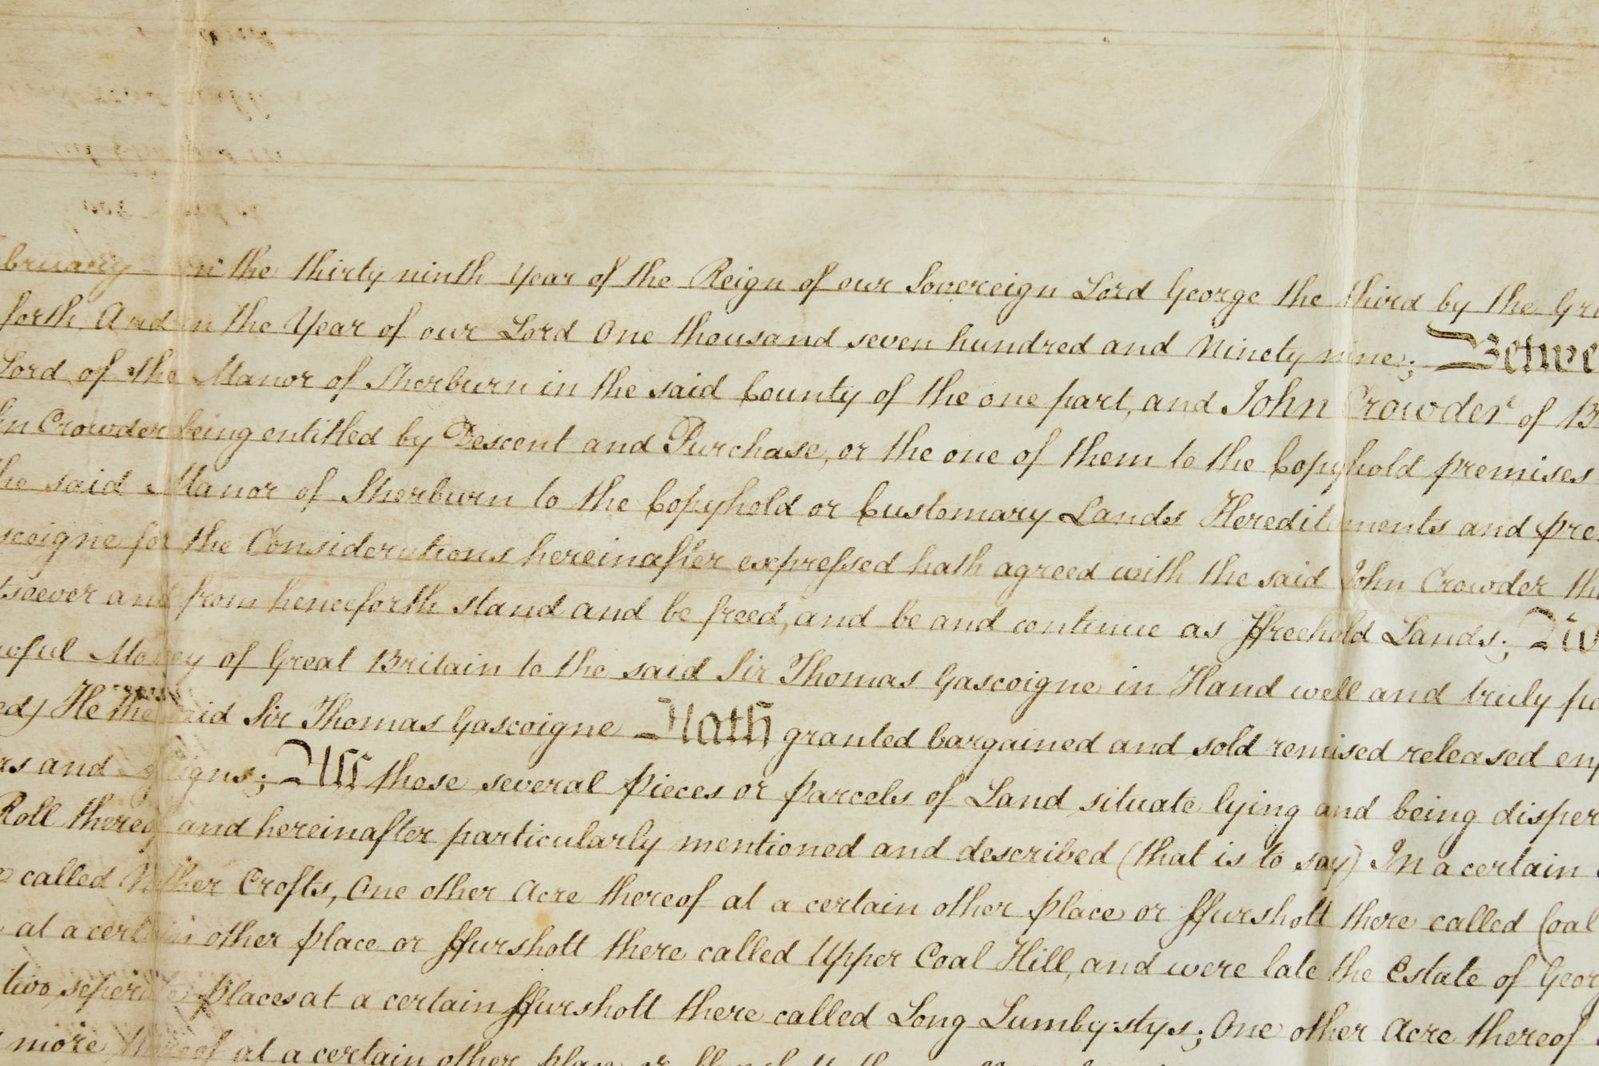 bruary in the thirty ninth Year of the Reign of our Sovereign Lord George the third by the Gr
forth And in the Year of our Lord One thousand seven hundred and Ninety nine; Betwe
Lord of the Manor of Sherburn in the said County of the one part, and John Crowder of B
hn Crowder being entitled by Descent and Purchase, or the one of them to the Copyhold premises
he said Manor of Sherburn to the Copyhold or Customary Lands Hereditements and pre
scoigne for the Considerations hereinafter expressed hath agreed with the said John Crowder th
tsoever and from henceforth stand and be freed, and be and continue as ffreehold Lands;
wful Money of Great Britain to the said Sir Thomas Gascoigne in Hand well and truly pa
ed) He the said Sir Thomas Gascoigne Hath granted bargained and sold remised released en
rs and assigns; All those several pieces or parcels of Land situate lying and being disper
Roll thereof and hereinafter particularly mentioned and described (that is to say) In a certain
called Nether Crofts, One other Acre thereof at a certain other place or ffursholt there called Coal
at a certain other place or ffursholt there called Upper Coal Hill, and were late the Estate of Geor
two seperate places at a certain ffursholt there called Long Lumby-stys; One other Acre thereof
more thereof at a certain other